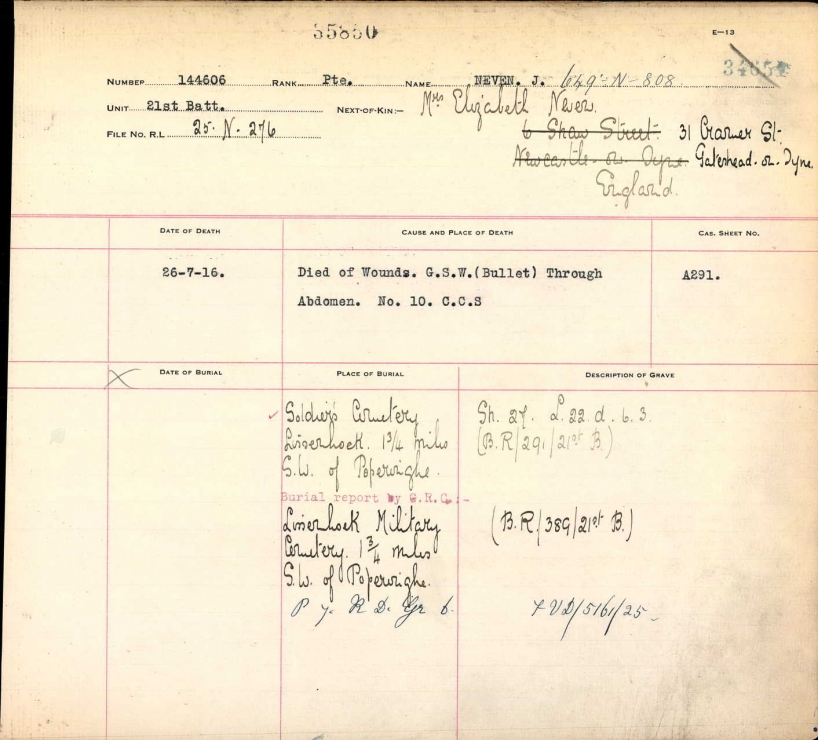 35850
E—13
34654
NUMBER 144606 RANK Pte. NAME NEVEN. J. 649-N-808
UNIT 21st Batt. NEXT-OF-KIN:— Mrs Elizabeth Neven.
6 Shaw Street 31 Cramer St.
FILE NO. R.L. 25. N. 276
Newcastle-on-Tyne. Gateshead-on-Tyne.
England.
DATE OF DEATH CAUSE AND PLACE OF DEATH CAS. SHEET NO.
26-7-16. Died of Wounds. G.S.W.(Bullet) Through A291.
Abdomen. No. 10. C.C.S
DATE OF BURIAL PLACE OF BURIAL DESCRIPTION OF GRAVE
Soldier's Cemetery Sh. 27. L. 22. d. 6. 3.
Lissenhoek. 1 3/4 miles (B.R/291/21st B.)
S.W. of Poperinghe.
Burial report by G.R.C.:-
Lissenhoek Military (B.R/389/21st B.)
Cemetery. 1 3/4 miles
S.W. of Poperinghe.
P 7. R D. Gr 6. FVD/5161/25